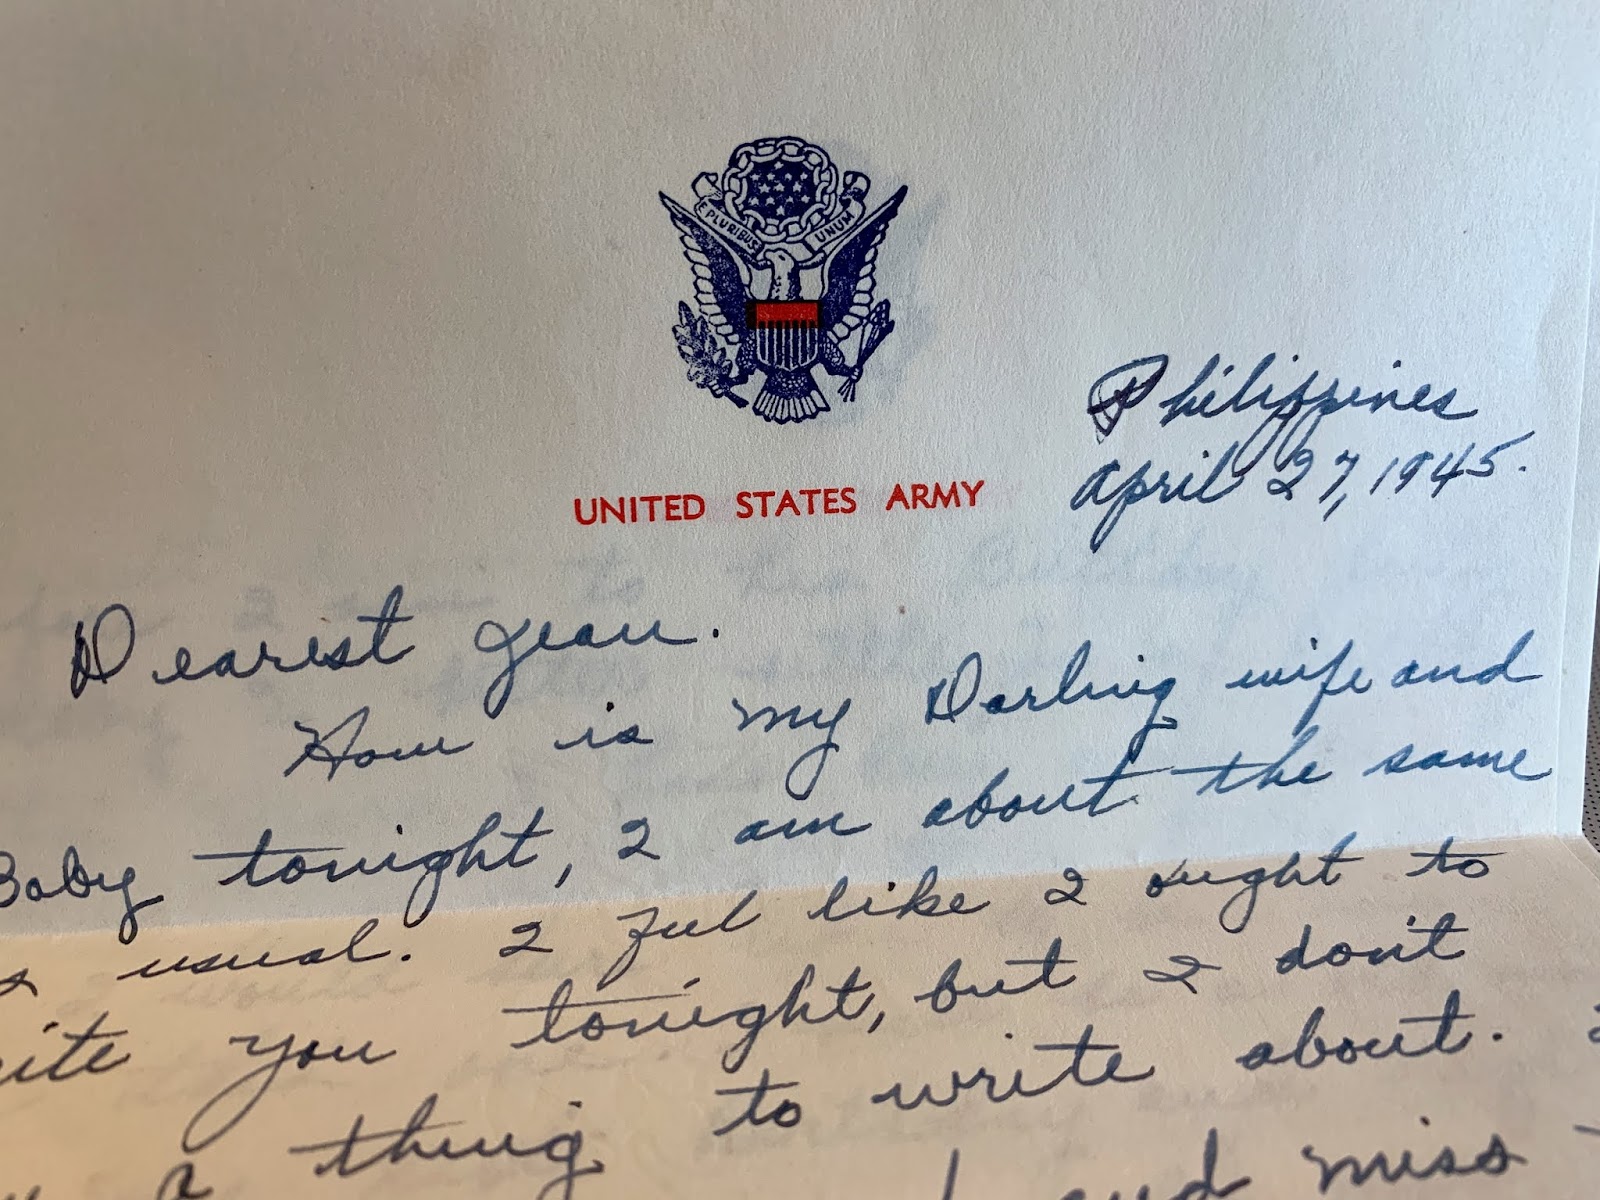 E PLURIBUS UNUM
UNITED STATES ARMY
Philippines
April 27, 1945.
Dearest Jean.
How is my Darling wife and
Baby tonight, I am about the same
usual. I feel like I ought to
you tonight, but I don't
a thing to write about.
and miss